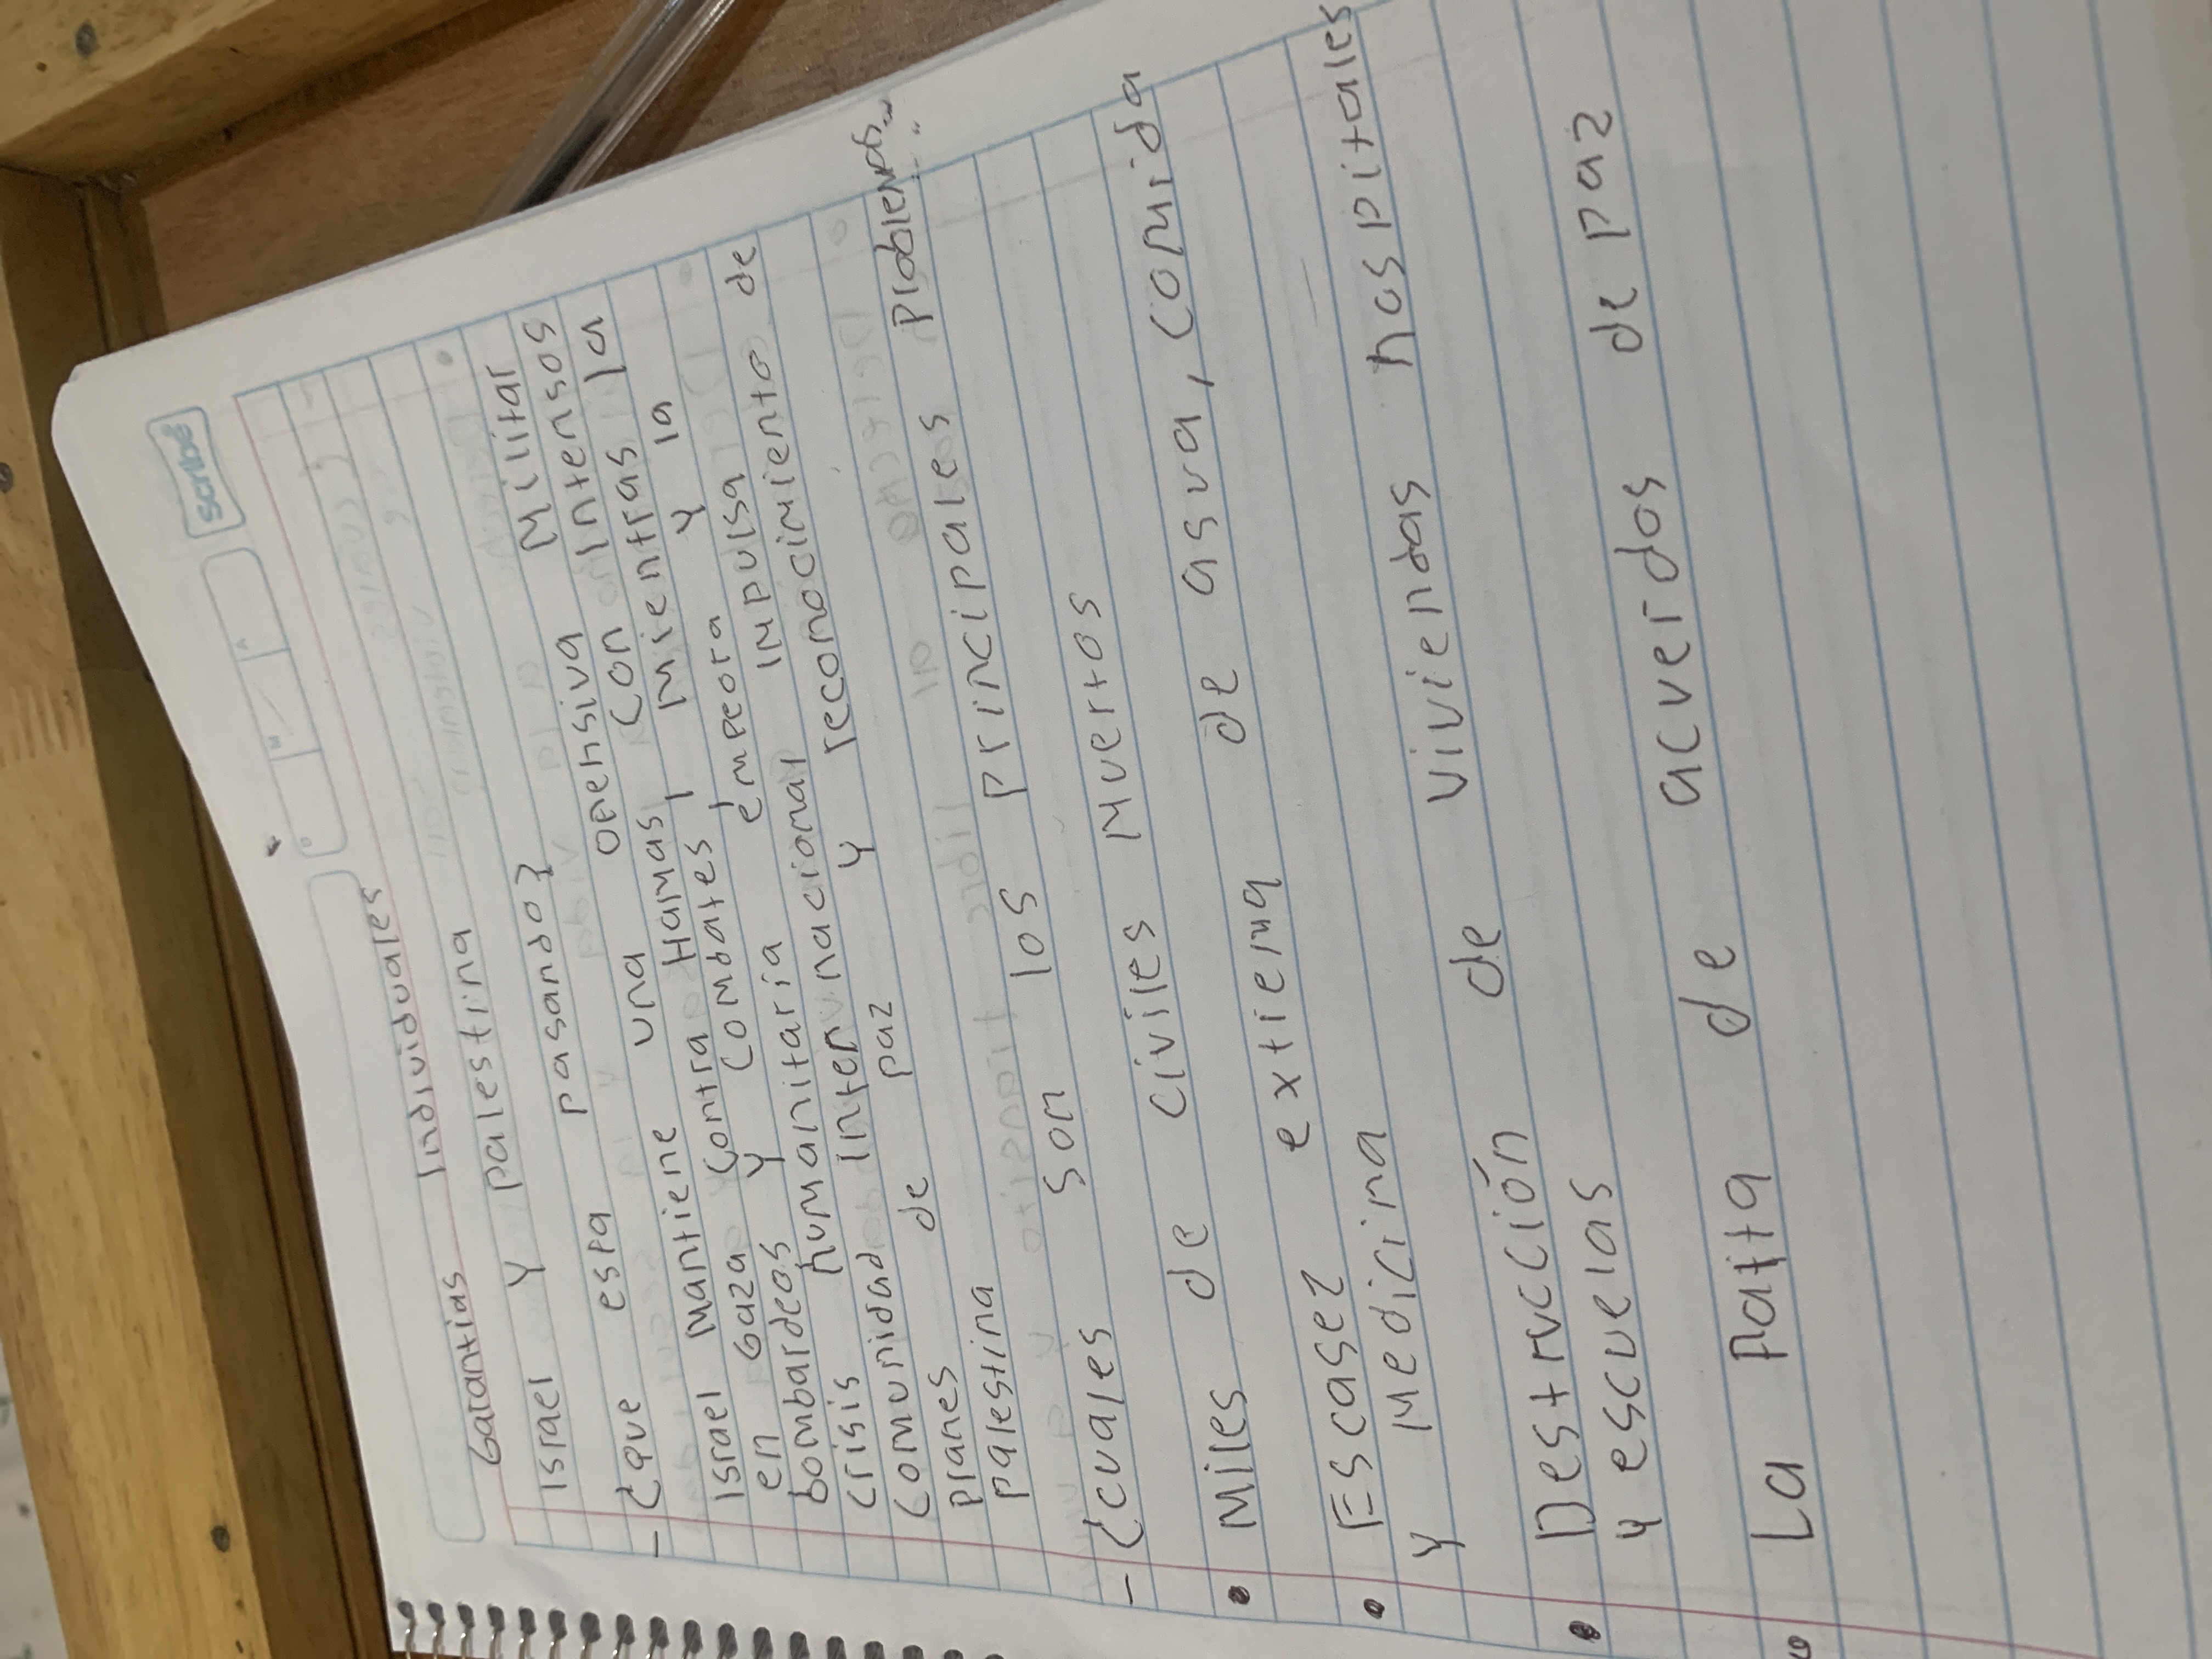 Scribe
Garantias Individuales
Israel y palestina
- ¿que esta pasando?
Israel mantiene una ofensiva Militar
en Gaza contra Hamas, con Intensos
bombardeos y combates, Mientras la
crisis humanitaria empeora y la
comunidad Internacional Impulsa de
planes de paz y reconocimiento de
palestina
- ¿cuales son los principales problemas...
• Miles de civiles Muertos
• Escasez extrema de agua, comida
y Medicina
• Destrucción de viviendas hospitales
y escuelas
• La falta de acuerdos de paz